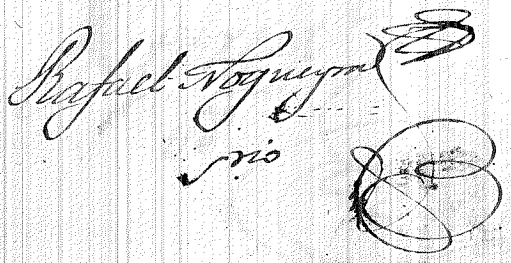 Rafael Nogueyra
srio